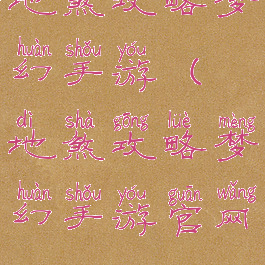 地煞攻略梦
huàn shǒu yóu
幻手游（
dì shà gōng lüè mèng
地煞攻略梦
huàn shǒu yóu guān wǎng
幻手游官网